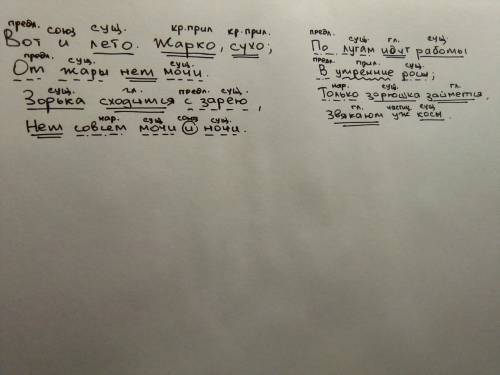 предл. союз сущ. кр.прил кр.прил.
Вот и лето. Жарко, сухо;
предл. сущ. сущ.
От жары нет мочи.
сущ. гл. предл. сущ.
Зорька сходится с зарею,
нар. сущ союз сущ.
Нет совсем мочи и ночи.
предл. сущ. гл. сущ.
По лугам идут работы
предл. прил. сущ.
В утренние росы;
нар. сущ. гл.
Только зорюшка займется,
гл. частиц. сущ
Звякают уж косы.